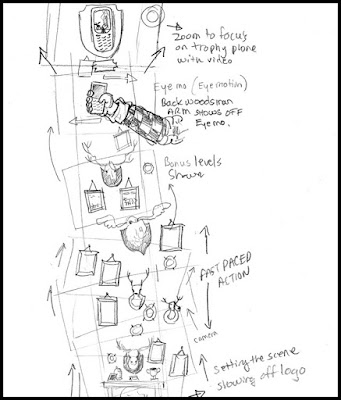 Zoom to focus
on trophy phone
with video
Eyemo (Eyemotion)
Backwoodsman
ARM shows off
Eyemo.
Bonus levels
Shown
FAST PACED
ACTION
camera
setting the scene
showing off logo